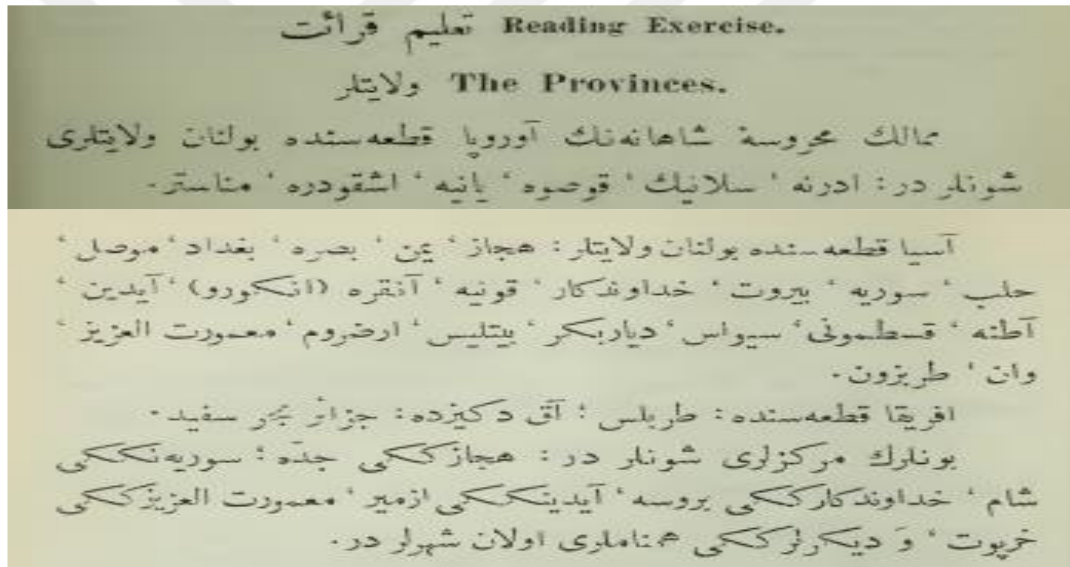 تعليم قرائت Reading Exercise.
ولايتلر The Provinces.
ممالك محروسهٔ شاهانه‌نك آوروپا قطعه‌سنده بولنان ولايتلرى
شونلر در : ادرنه ‘ سلانيك ‘ قوصوه ‘ يانيه ‘ اشقودره ‘ مناستر.
آسيا قطعه‌سنده بولنان ولايتلر : حجاز ‘ يمن ‘ بصره ‘ بغداد ‘ موصل ‘
حلب ‘ سوريه ‘ بيروت ‘ خداوندكار ‘ قونيه ‘ آنقره (انكورو) ‘ آيدين ‘
آطنه ‘ قسطمونى ‘ سيواس ‘ دياربكر ‘ بيتليس ‘ ارضروم ‘ معمورت العزيز ‘
وان ‘ طربزون.
افريقا قطعه‌سنده : طربلس ؛ آق دكيزده : جزائر بحر سفيد.
بونلرك مركزلرى شونلر در : حجازككى جدّه ؛ سوريه‌نككى
شام ‘ خداوندكارككى بروسه ‘ آيدينككى ازمير ‘ معمورت العزيزككى
خرپوت ‘ وَ ديكرلرككى همناملرى اولان شهرلر در.